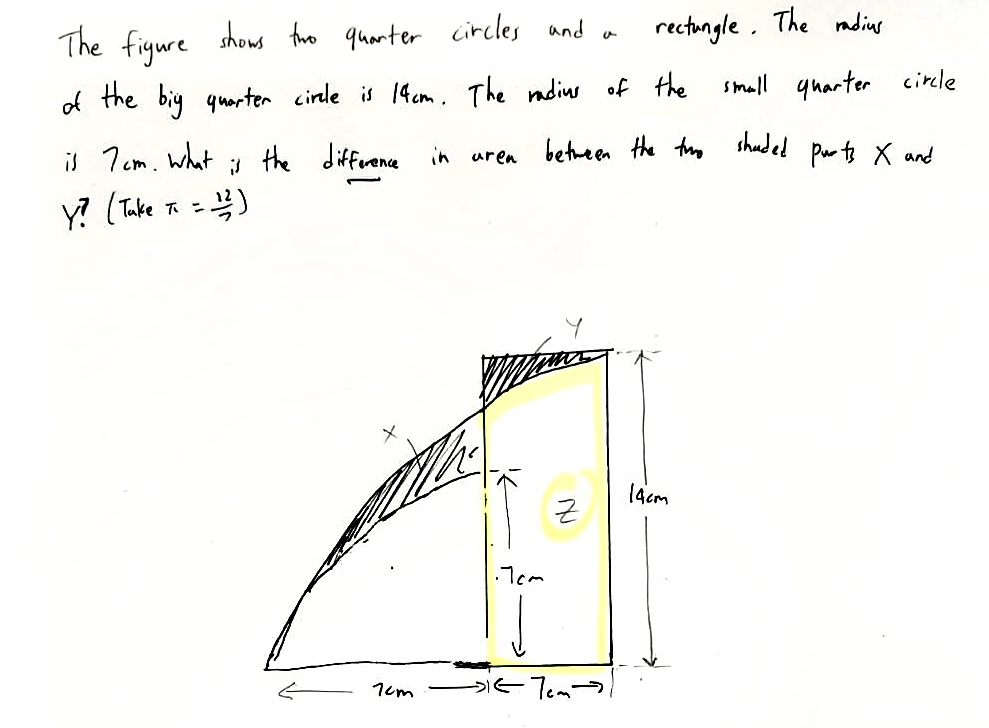 The figure shows two quarter circles and a rectangle. The radius
of the big quarter circle is 14cm. The radius of the small quarter circle
is 7cm. What is the difference in area between the two shaded parts X and
Y? (Take π = 22/7)
Y
X
14cm
Z
7cm
7cm
7cm